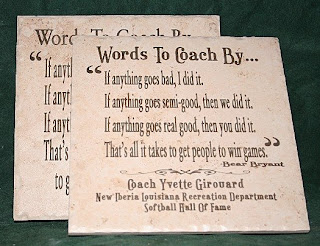 Words To Coach By
"If anyth
If anyth
If anyth
That's
to g
Words To Coach By...
"If anything goes bad, I did it.
If anything goes semi-good, then we did it.
If anything goes real good, then you did it.
That's all it takes to get people to win games."
Bear Bryant
Coach Yvette Girouard
New Iberia Louisiana Recreation Department
Softball Hall Of Fame